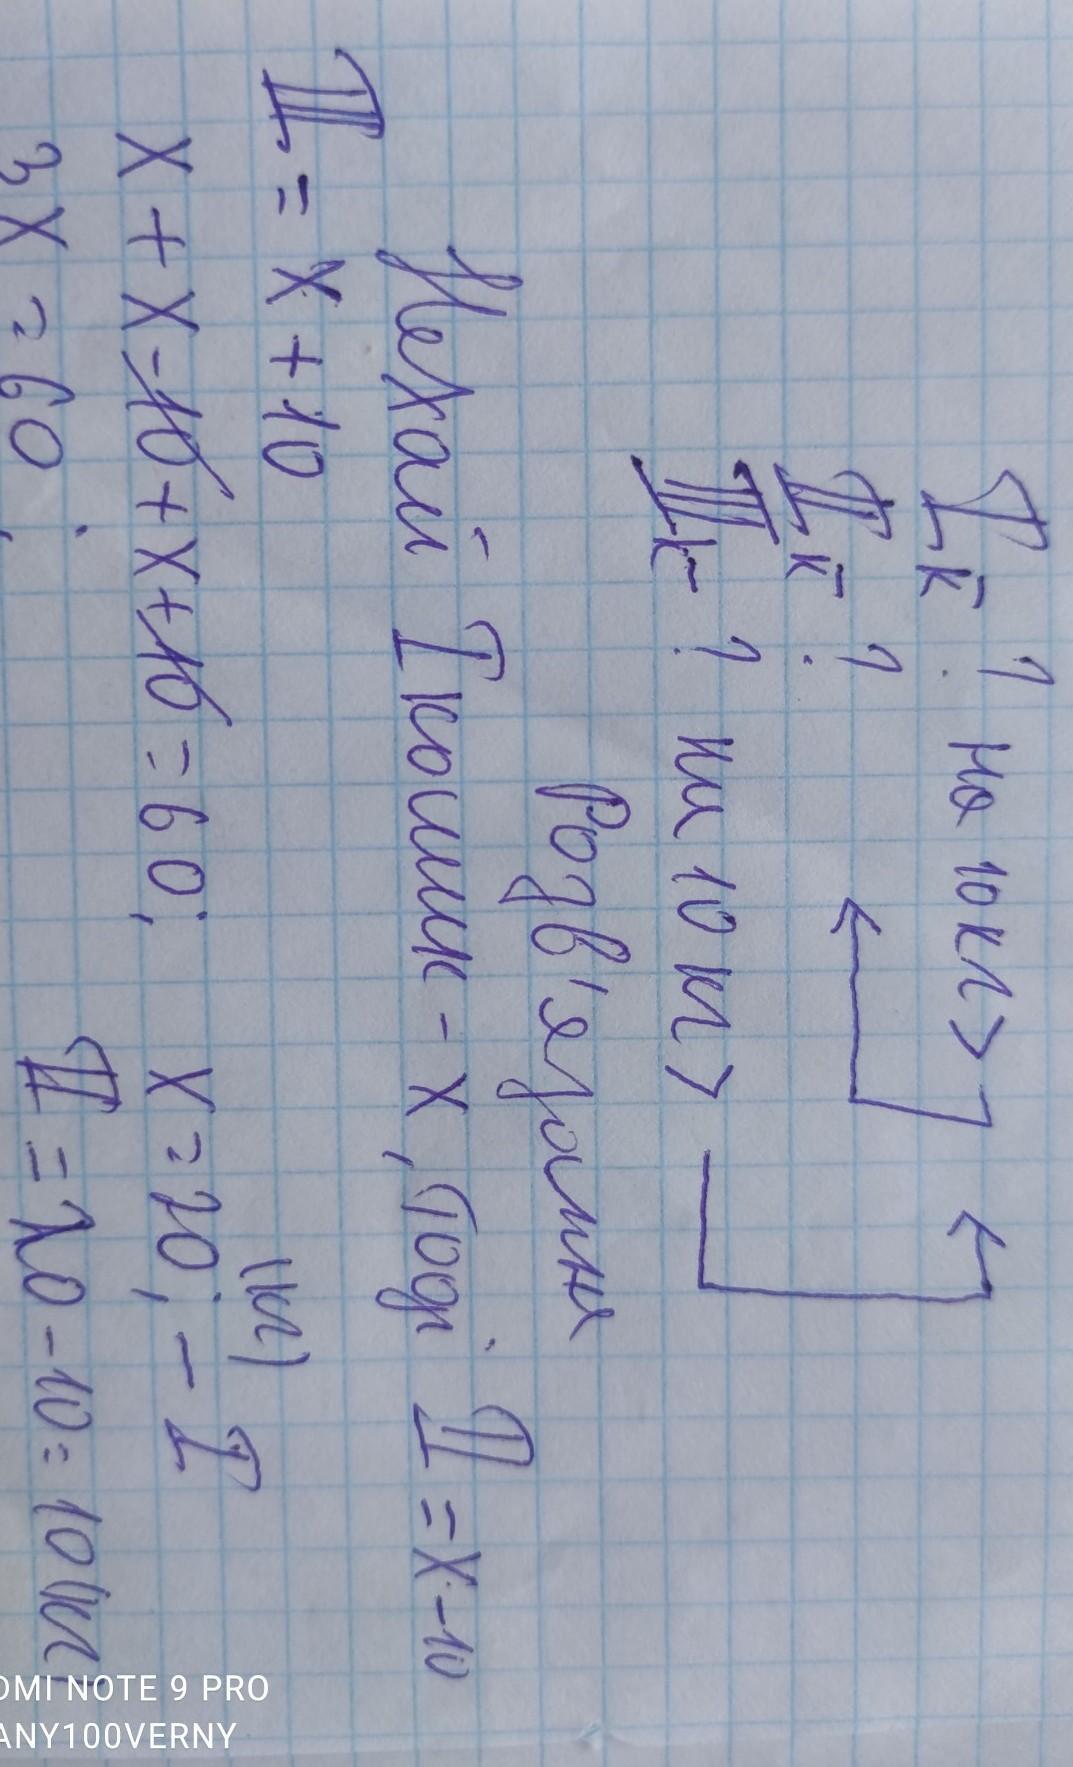 I к - ? на 10 кл >
II к - ?
III к - ? на 10 кл >
Розв'язання
Нехай I кошик - x, тоді II = x-10
III = x + 10
x + x - 10 + x + 10 = 60; x = 20; - I (кл)
3x = 60; II = 20 - 10 = 10 (кл)
OMI NOTE 9 PRO
ANY100VERNY